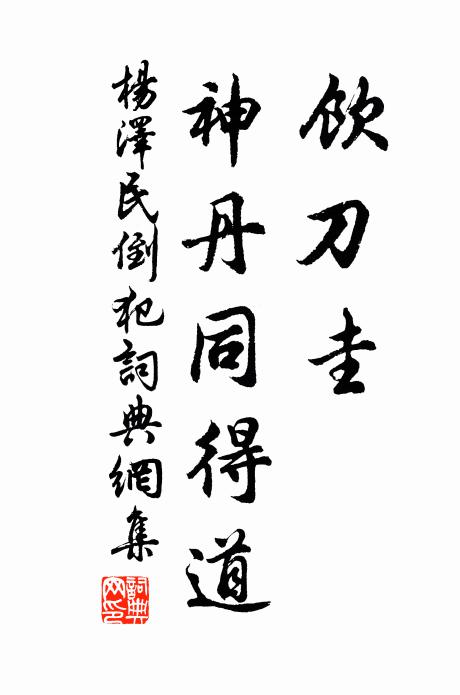 飲刀圭
神丹同得道
楊澤民倒犯詞典網集
詞典
网印